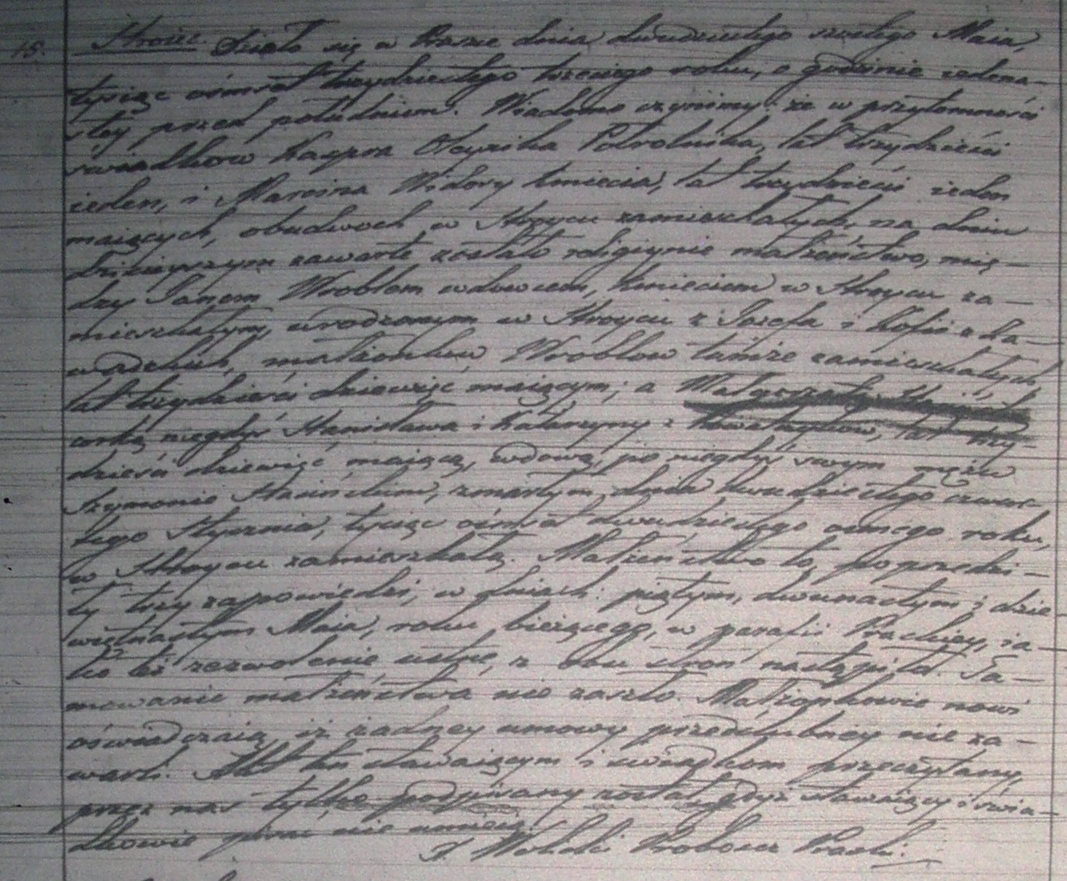 15. Stroiec Działo się w Prasce dnia dwudziestego szóstego Maia,
tysiąc ośmset trzydziestego trzeciego roku, o godzinie iedena-
stey przed południem. Wiadomo czynimy: że w przytomności
świadkow Kacpra Polrolnika, lat trzydzieści
ieden, i Marcina Widory kmiecia, lat trzydzieści ieden
maiących, obudwoch w Stroycu zamieszkałych na dniu
dzisieyszym zawarte zostało religiynie małżeństwo, mię-
dzy Janem Wroblem wdowcem, kmieciem w Stroycu za-
mieszkałym, urodzonym w Stroycu z Jozefa i Zofii z Ka-
małżonkow Wroblow tamże zamieszkałych,
lat trzydzieści dziewięć maiącym; a Małgorzatą
corką niegdyś Stanisława i Katarzyny z lat trzy-
dzieści dziewięć, maiącą, wdową, po niegdy swym mężu
Szymonie zmarłym dnia dwudziestego czwar-
tego Stycznia, tysiąc ośmset dwudziestego osmego roku,
w Stroycu zamieszkałą. Małżeństwo to, poprzedzi-
ły trzy zapowiedzi, w dniach: piątym, dwunastym i dzie-
więtnastym Maia, roku bieżącego, w parafii Praskiey, ia-
ko też zezwolenie ustne, z obu stron nastąpiło. Ta-
mowanie małżeństwa nie zaszło. Małżonkowie nowi
oświadczaią, iż żadney umowy przedślubney nie za-
warli. Akt ten stawaiącym i świadkom przeczytany,
przez nas tylko podpisany został, gdyż stawaiący i świa-
dkowie pisać nie umieią.
Proboszcz Praski.